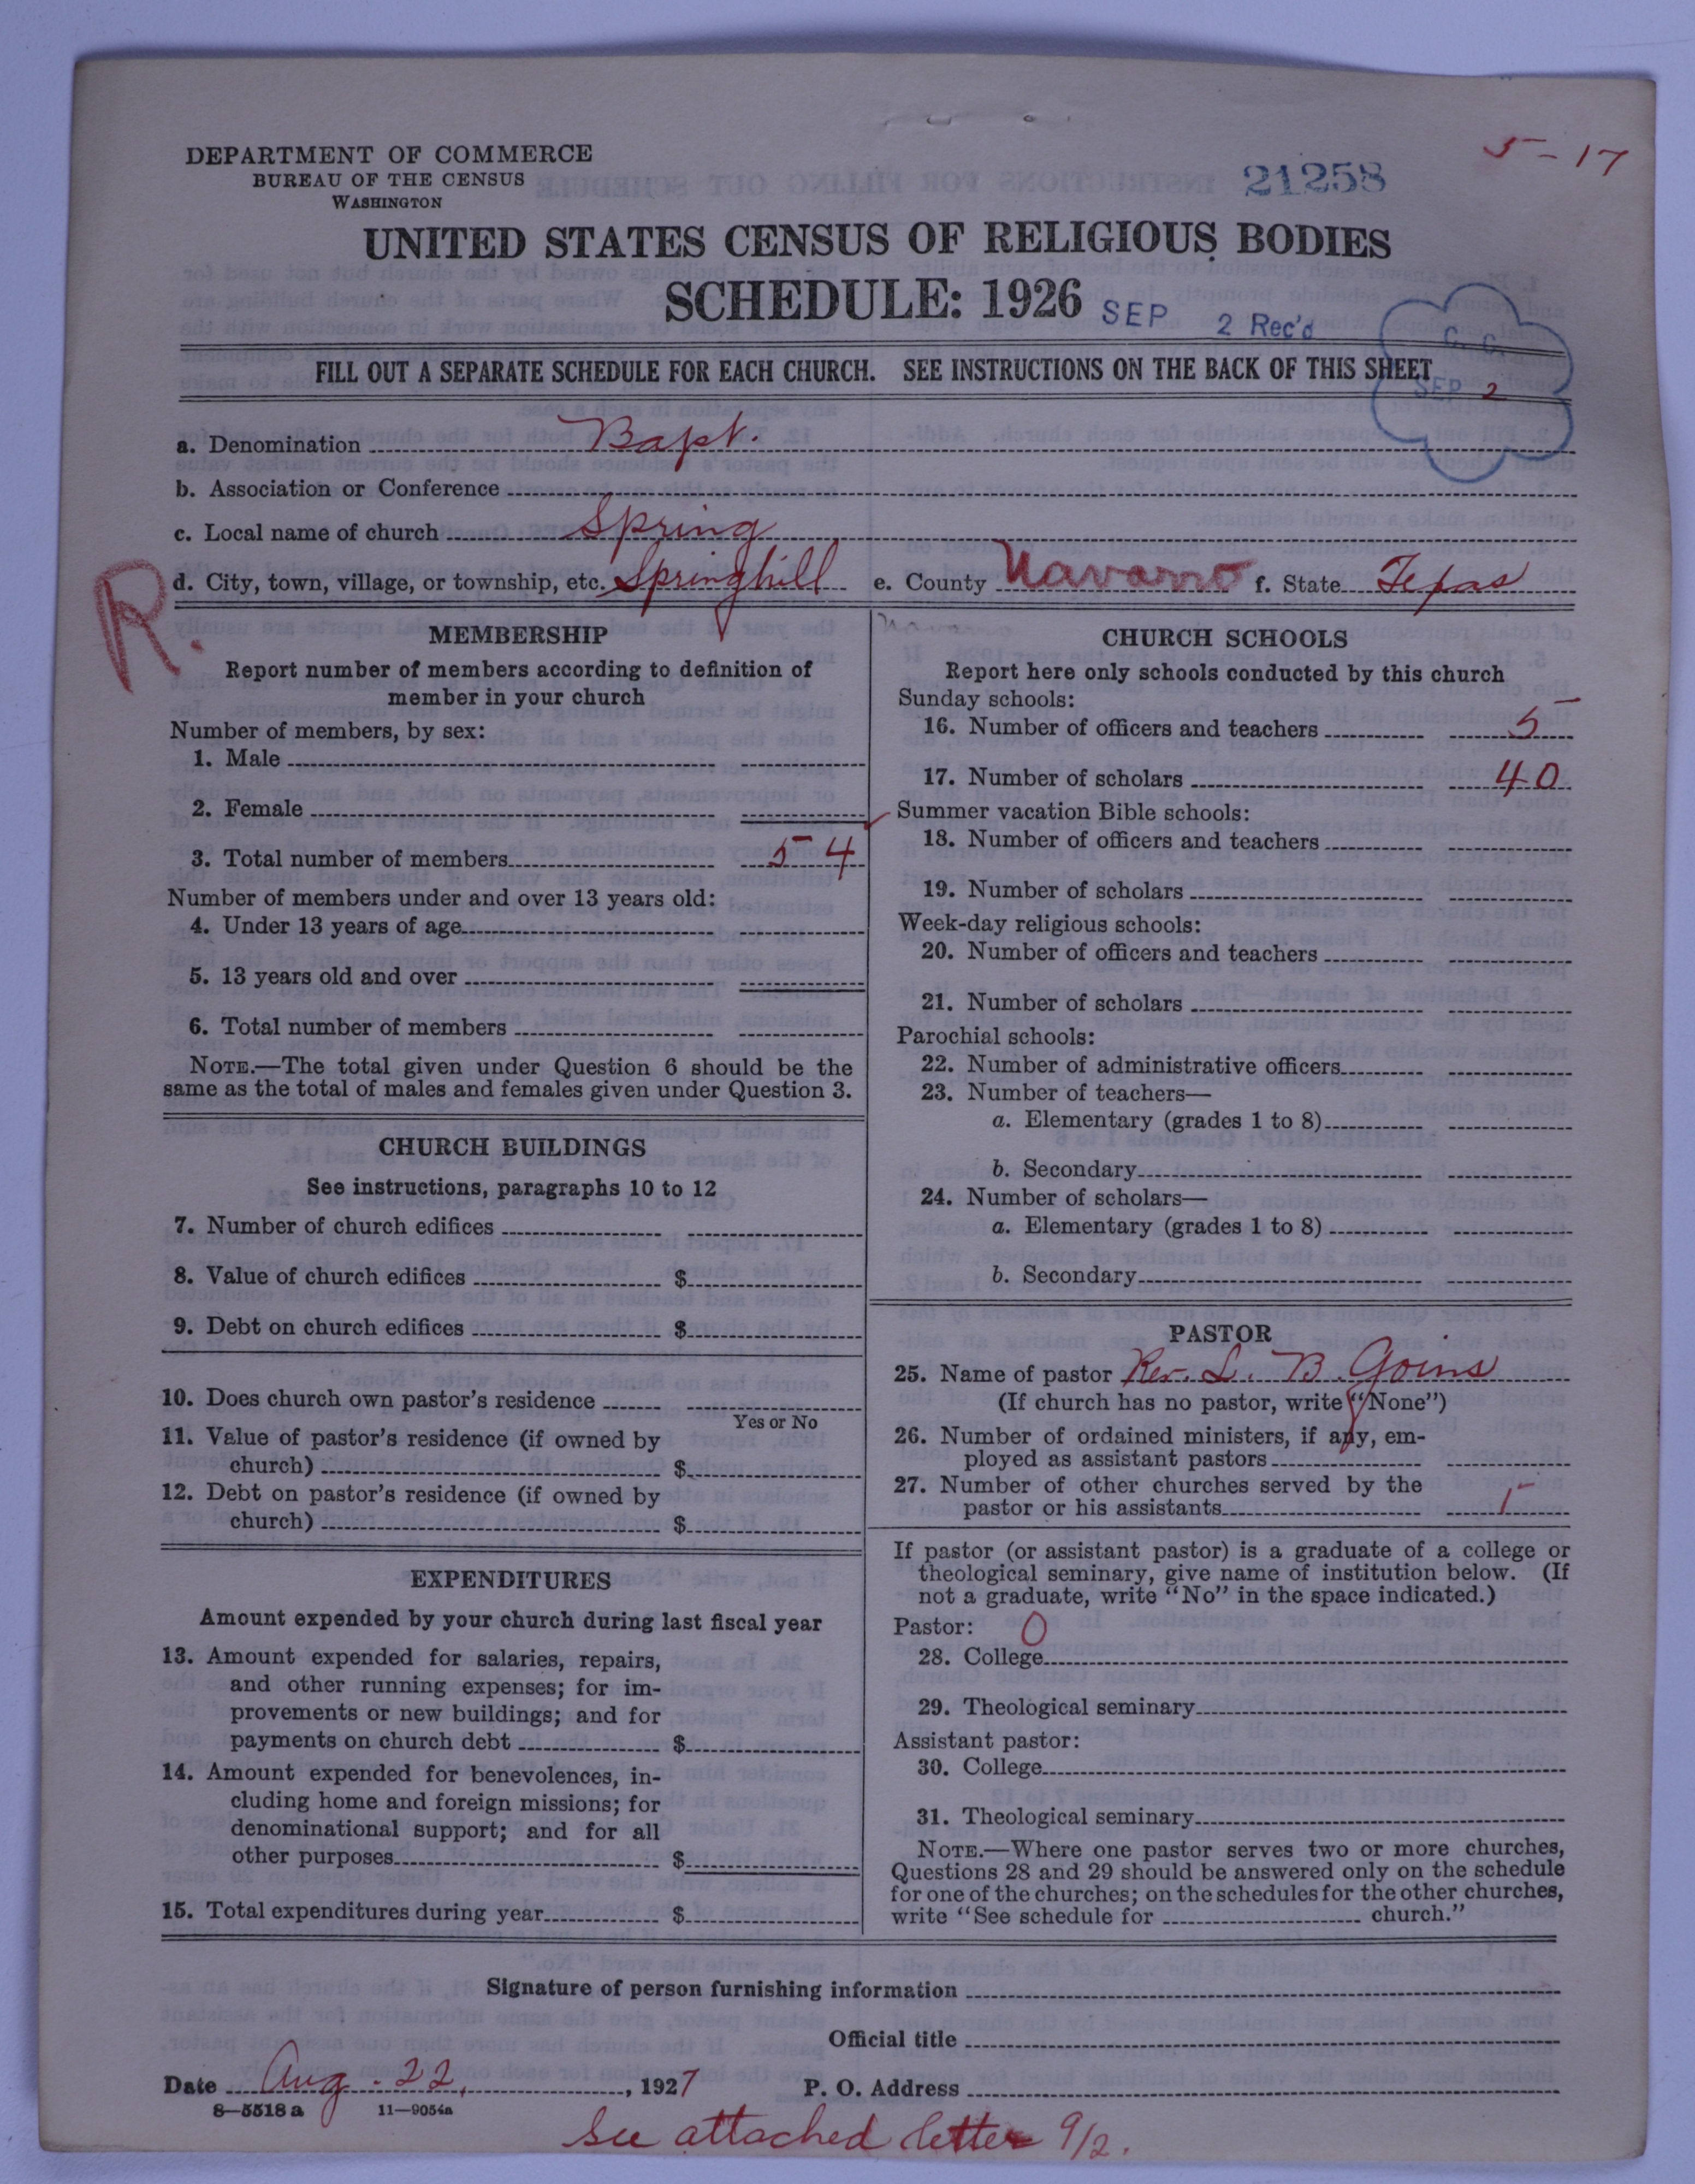 5-17
DEPARTMENT OF COMMERCE
BUREAU OF THE CENSUS
WASHINGTON
21258
UNITED STATES CENSUS OF RELIGIOUS BODIES
SCHEDULE: 1926
SEP 2 Rec'd
G. C.
SEP 2
FILL OUT A SEPARATE SCHEDULE FOR EACH CHURCH. SEE INSTRUCTIONS ON THE BACK OF THIS SHEET
a. Denomination Bapt.
b. Association or Conference
c. Local name of church Spring
R.
d. City, town, village, or township, etc. Springhill e. County Navarro f. State Texas
MEMBERSHIP
Report number of members according to definition of
member in your church
Number of members, by sex:
1. Male
2. Female
3. Total number of members 54
Number of members under and over 13 years old:
4. Under 13 years of age
5. 13 years old and over
6. Total number of members
NOTE.—The total given under Question 6 should be the
same as the total of males and females given under Question 3.
CHURCH BUILDINGS
See instructions, paragraphs 10 to 12
7. Number of church edifices
8. Value of church edifices $
9. Debt on church edifices $
10. Does church own pastor's residence
Yes or No
11. Value of pastor's residence (if owned by
church) $
12. Debt on pastor's residence (if owned by
church) $
EXPENDITURES
Amount expended by your church during last fiscal year
13. Amount expended for salaries, repairs,
and other running expenses; for im-
provements or new buildings; and for
payments on church debt $
14. Amount expended for benevolences, in-
cluding home and foreign missions; for
denominational support; and for all
other purposes $
15. Total expenditures during year $
Navarro
CHURCH SCHOOLS
Report here only schools conducted by this church
Sunday schools:
16. Number of officers and teachers 5
17. Number of scholars 40
Summer vacation Bible schools:
18. Number of officers and teachers
19. Number of scholars
Week-day religious schools:
20. Number of officers and teachers
21. Number of scholars
Parochial schools:
22. Number of administrative officers
23. Number of teachers—
a. Elementary (grades 1 to 8)
b. Secondary
24. Number of scholars—
a. Elementary (grades 1 to 8)
b. Secondary
PASTOR
25. Name of pastor Rev. L. B. Goins
(If church has no pastor, write "None")
26. Number of ordained ministers, if any, em-
ployed as assistant pastors
27. Number of other churches served by the
pastor or his assistants 1
If pastor (or assistant pastor) is a graduate of a college or
theological seminary, give name of institution below. (If
not a graduate, write "No" in the space indicated.)
Pastor: 0
28. College
29. Theological seminary
Assistant pastor:
30. College
31. Theological seminary
NOTE.—Where one pastor serves two or more churches,
Questions 28 and 29 should be answered only on the schedule
for one of the churches; on the schedules for the other churches,
write "See schedule for church."
Signature of person furnishing information
Official title
Date Aug. 22, 1927 P. O. Address
8—5518 a 11—9054a
See attached letter 9/2.